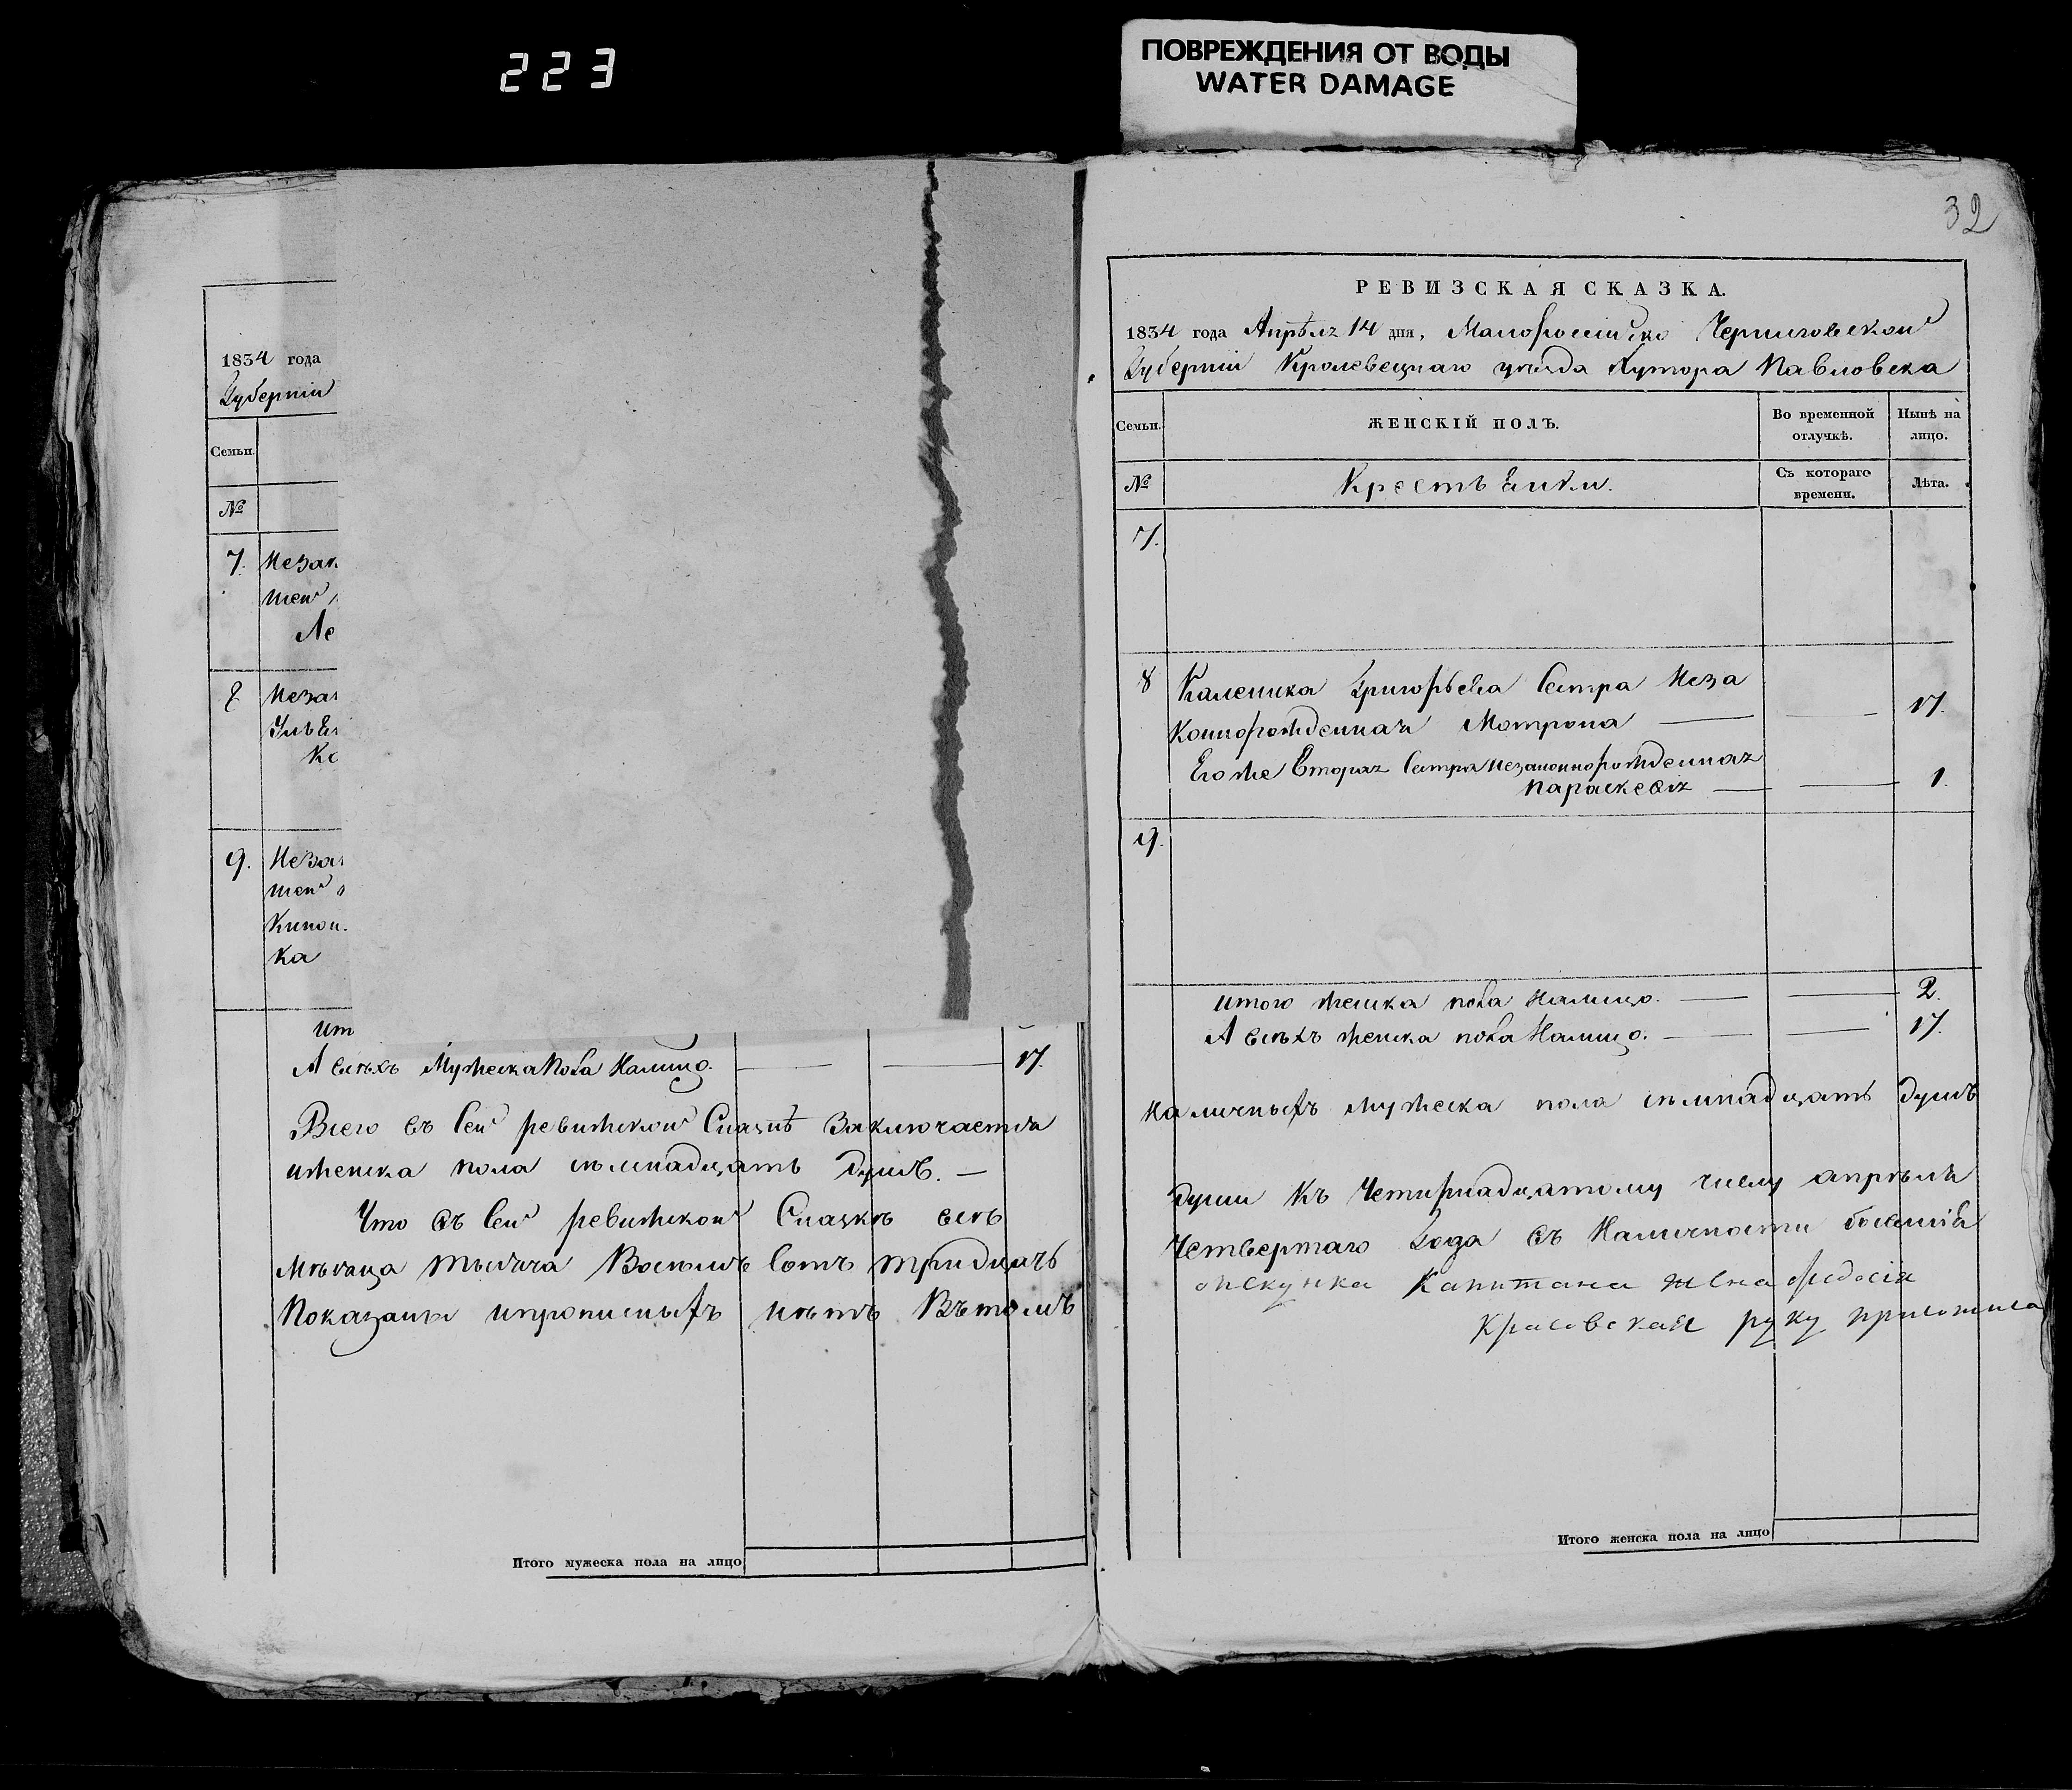 223
ПОВРЕЖДЕНИЯ ОТ ВОДЫ
WATER DAMAGE
1834 года
Губернiи
Семьи.
№
7. Незак
Ле
8 Незак
9. Незак
ка
Ит
А всѣхъ Мужеска Пола Налицо. 17.
Всего въ Сей ревижской Сказкѣ Заключается
ижениска пола семнадцать душъ. —
Что въ Сей ревижской Сказкѣ всѣ
Мѣсяца тысяча Восемь Сотъ тридцать
Показаны ипрописныхъ нѣтъ Вътомъ
Итого мужеска пола на лицо
32
РЕВИЗСКАЯ СКАЗКА.
1834 года Апрѣля 14 дня, Малороссiйско Черниговской
Губернiи Кролевецкаго уѣзда Хутора Павловска
Семьи. ЖЕНСКIЙ ПОЛЪ. Во временной отлучкѣ. Нынѣ на лицо.
№ Крестьянки. Съ котораго времени. Лѣта.
7.
8 Каленика Григорьева Сестра Неза
коннорожденная Мотрона — 17.
Егоже Вторая Сестра незаконнорожденная
Параскевiя — 1.
9.
итого женска пола Налицо. — 2.
А всѣхъ женска пола Налицо. — 17.
Наличныхъ мужеска пола семнадцать душъ
души къ Четырнадцатому числу апрѣля
Четвертаго Года въ Наличности бывшiя
опекунка Капитана жена Федосiя
Красовская руку приложила
Итого женска пола на лицо